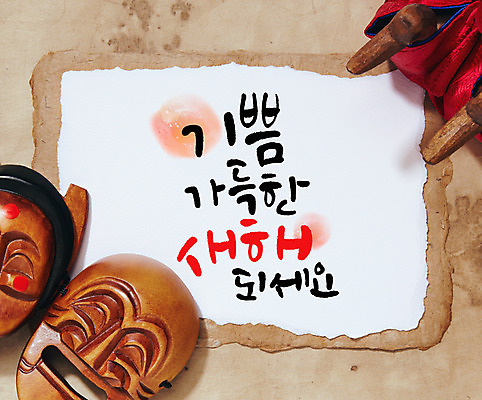 기쁨
가득한
새해
되세요